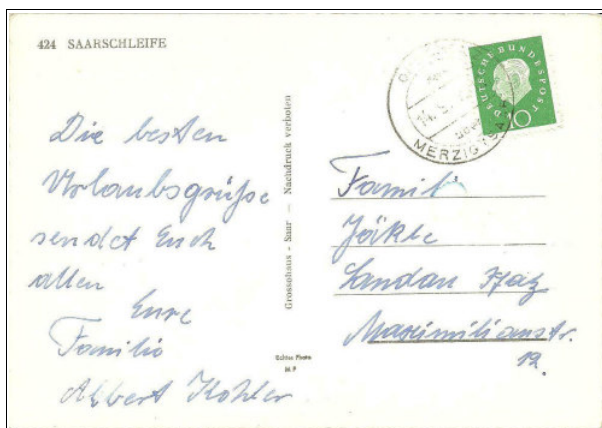 424 SAARSCHLEIFE
Die besten
Urlaubsgrüße
sendet Euch
allen
Eure
Familie
Albert Kohler
Grossohaus - Saar — Nachdruck verboten
Echtes Photo
DEUTSCHE BUNDESPOST
10
MERZIG (SAAR)
Familie
Jäkle
Landau Pfalz
Maximilianstr.
12.